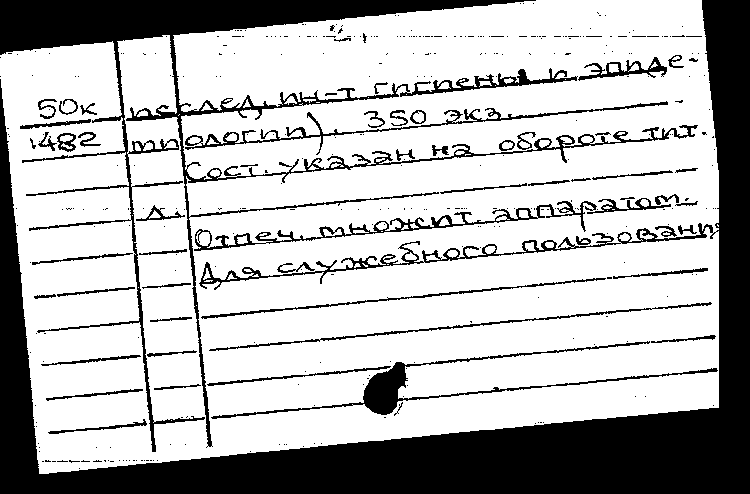 2.
50к исслед. ин-т гигиены и эпиде-
1482 миологии). 350 экз.
Сост. указан на обороте тит.
л.
Отпеч. множит. аппаратом.
Для служебного пользования